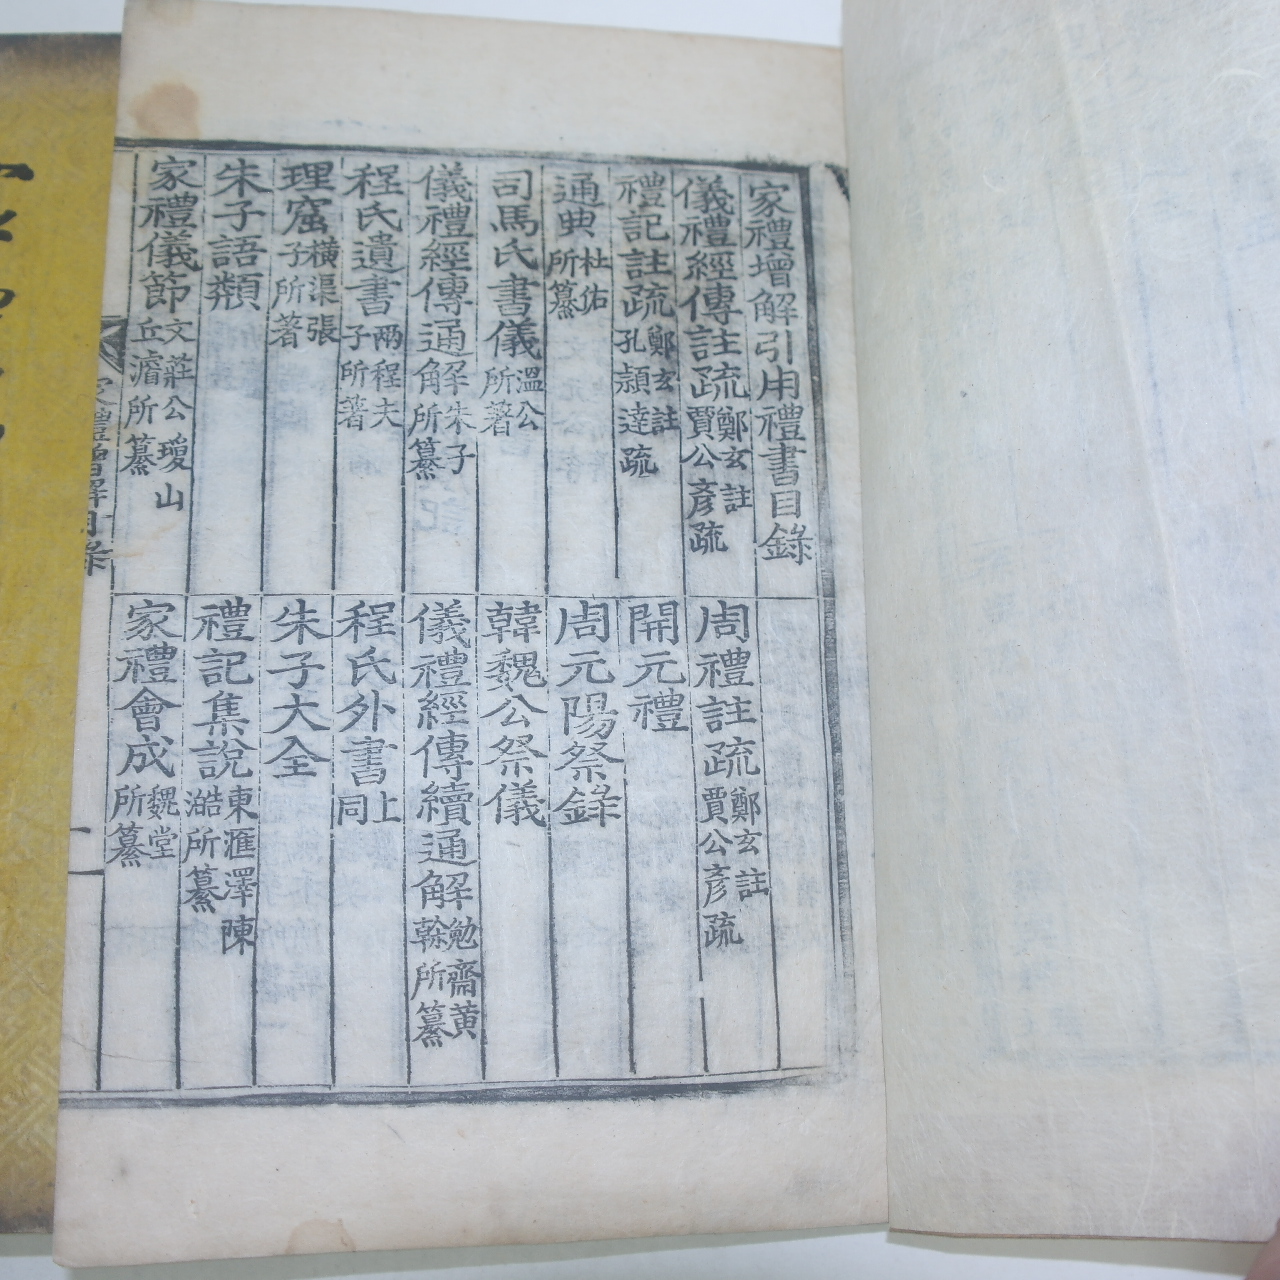 家禮增解引用禮書目錄
儀禮經傳註疏 鄭玄註 賈公彥疏
周禮註疏 鄭玄註 賈公彥疏
禮記註疏 鄭玄註 孔頴達疏
開元禮
通典 杜佑所纂
周元陽祭錄
司馬氏書儀 溫公所著
韓魏公祭儀
儀禮經傳通解 朱子所纂
儀禮經傳續通解 勉齋黃榦所纂
程氏遺書 兩程夫子所著
程氏外書 上同
理窟 橫渠張子所著
朱子大全
朱子語類
禮記集說 東滙澤陳澔所纂
家禮儀節 文莊公瓊山丘濬所纂
家禮會成 魏堂所纂
家禮增解目錄
一